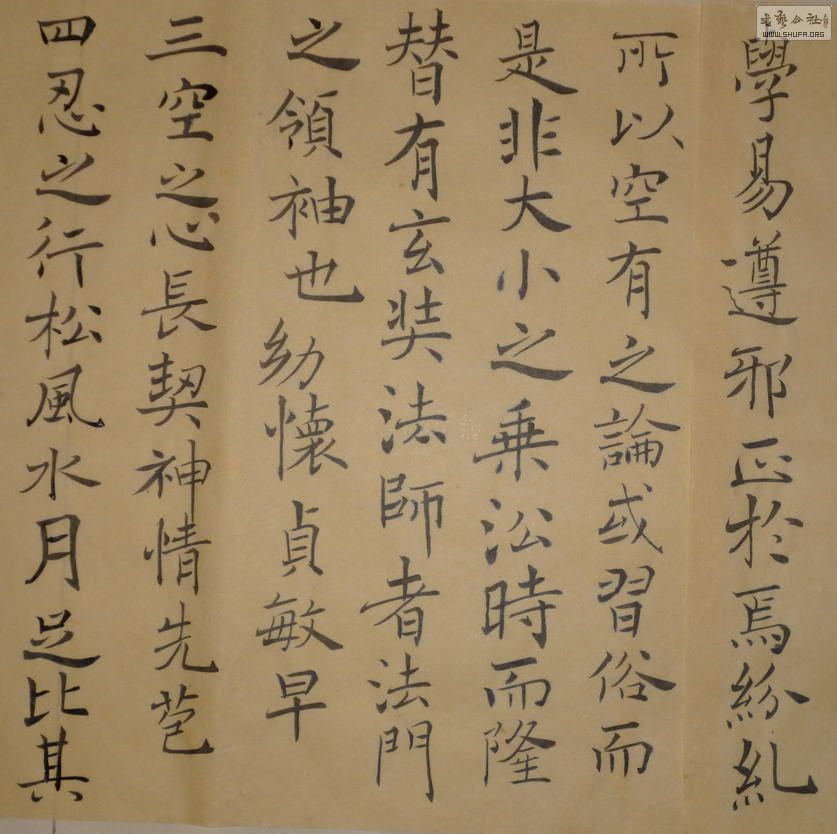 學易遵邪正於焉紛糺
所以空有之論或习俗而
是非大小之乗㳂時而隆
替有玄奘法師者法門
之領袖也幼懷貞敏早
三空之心長契神情先苞
四忍之行松風水月足比其
书艺公社
WWW.SHUFA.ORG